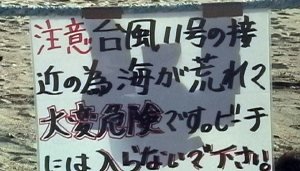 注意台風11号の接
近の為海が荒れて
大変危険です。ビーチ
には入らないで下さい。